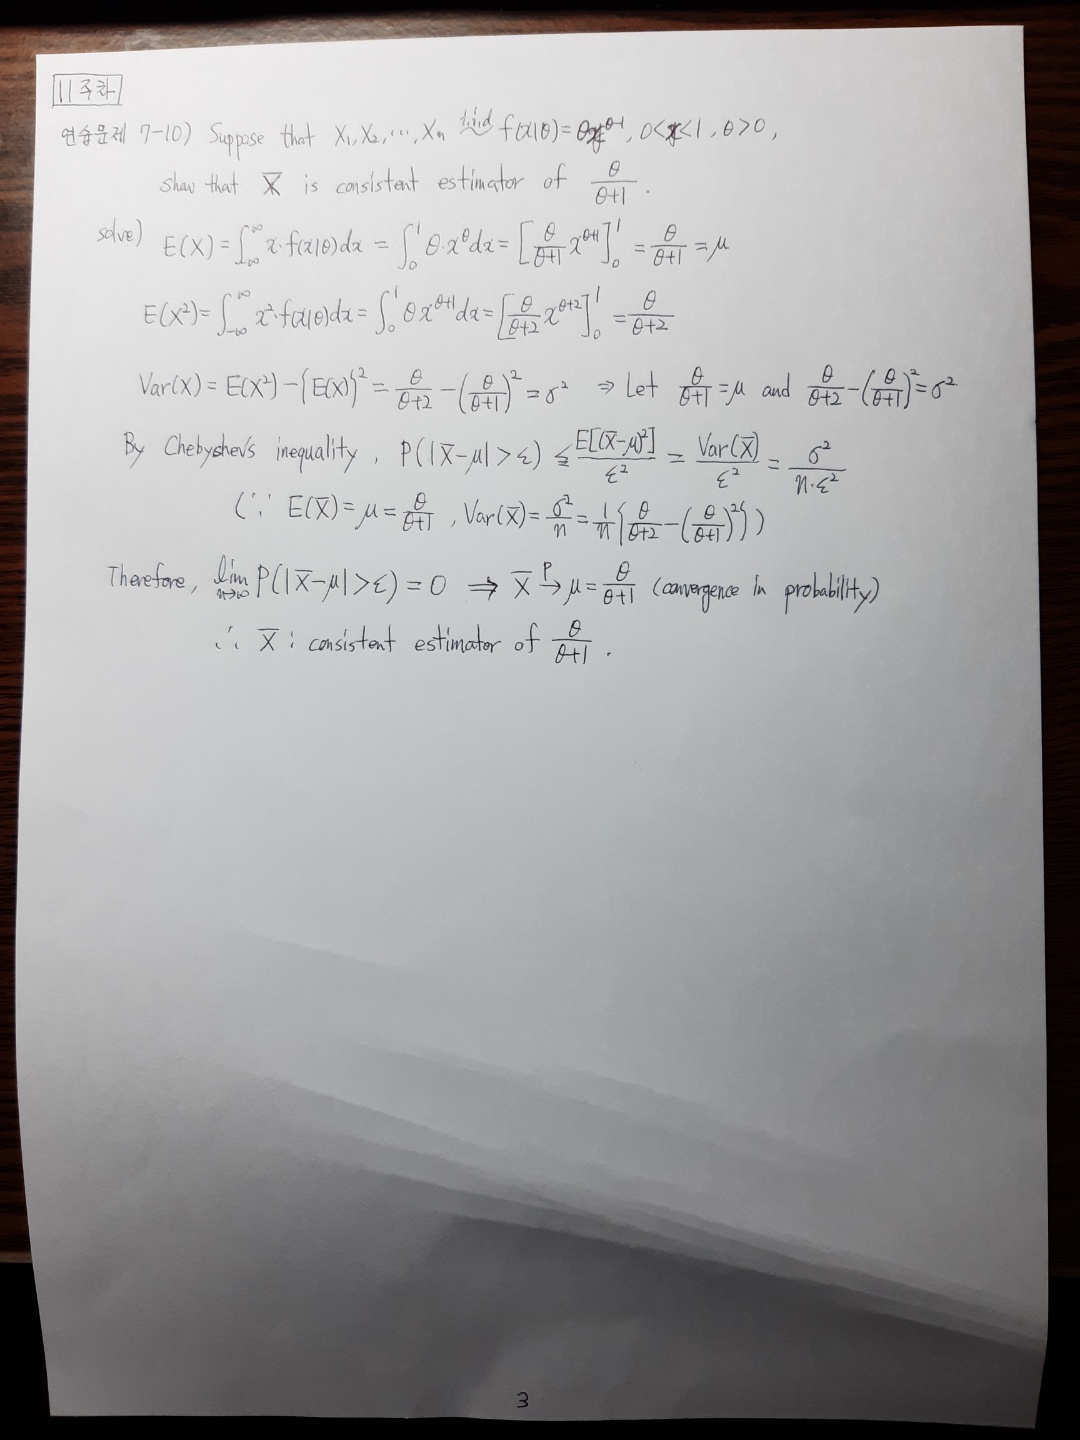 11주차
연습문제 7-10) Suppose that X₁, X₂, ⋯, Xₙ i.i.d f(x|θ) = θx^(θ-1), 0<x<1, θ>0,
show that X̄ is consistent estimator of θ/(θ+1).
solve) E(X) = ∫_{-∞}^{∞} x·f(x|θ)dx = ∫₀¹ θ·x^θ dx = [θ/(θ+1) x^(θ+1)]₀¹ = θ/(θ+1) = μ
E(X²) = ∫_{-∞}^{∞} x²·f(x|θ)dx = ∫₀¹ θx^(θ+1) dx = [θ/(θ+2) x^(θ+2)]₀¹ = θ/(θ+2)
Var(X) = E(X²) - {E(X)}² = θ/(θ+2) - (θ/(θ+1))² = σ² ⇒ Let θ/(θ+1) = μ and θ/(θ+2) - (θ/(θ+1))² = σ²
By Chebyshev's inequality, P(|X̄-μ|>ε) ≤ E[(X̄-μ)²]/ε² = Var(X̄)/ε² = σ²/(n·ε²)
(∵ E(X̄) = μ = θ/(θ+1), Var(X̄) = σ²/n = 1/n{θ/(θ+2) - (θ/(θ+1))²})
Therefore, lim_{n→∞} P(|X̄-μ|>ε) = 0 ⇒ X̄ →ᴾ μ = θ/(θ+1) (convergence in probability)
∴ X̄ : consistent estimator of θ/(θ+1).
3